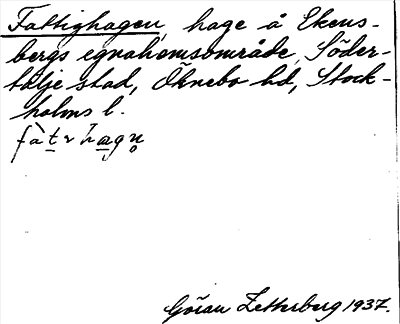 Fattighagen, hage å Ekens-
bergs egnahemsområde, Söder-
tälje stad, Öknebo hd, Stock-
holms l.
Göran Zetterberg 1937.